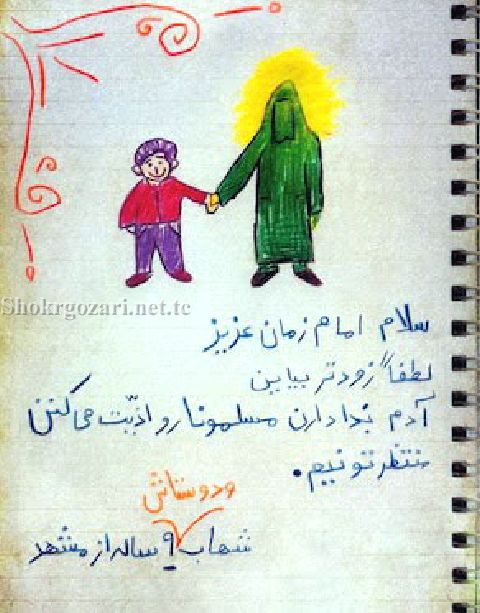 Shokrgozari.net.tc
سلام امام زمان عزیز
لطفاً زودتر بیاین
آدم بدا دارن مسلمونا رو اذیّت می کنن
منتظرتونیم.
ودوستاش
شهاب ۹ ساله از مشهد